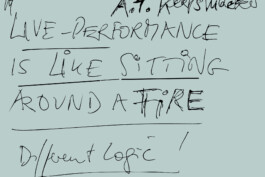 LIVE-PERFORMANCE
IS LIKE SITTING
AROUND A FIRE
Different Logic!